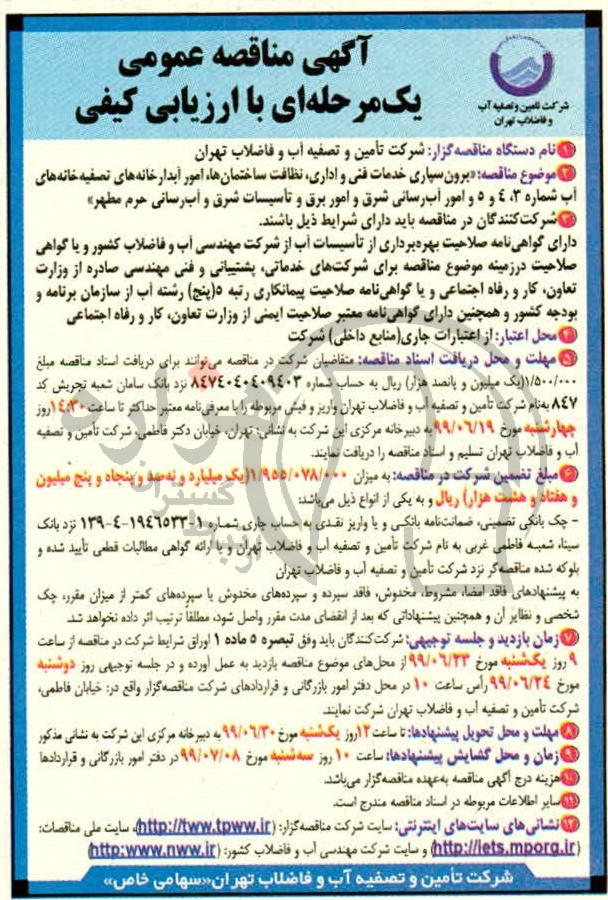 آگهی مناقصه عمومی
یک‌مرحله‌ای با ارزیابی کیفی
شرکت تامین و تصفیه آب
و فاضلاب تهران
۱ نام دستگاه مناقصه‌گزار: شرکت تأمین و تصفیه آب و فاضلاب تهران
۲ موضوع مناقصه: «برون‌سپاری خدمات فنی و اداری، نظافت ساختمان‌ها، امور آبدارخانه‌های تصفیه‌خانه‌های
آب شماره ۳، ۴ و ۵ و امور آب‌رسانی شرق و امور برق و تأسیسات شرق و آب‌رسانی حرم مطهر»
۳ شرکت‌کنندگان در مناقصه باید دارای شرایط ذیل باشند.
دارای گواهی‌نامه صلاحیت بهره‌برداری از تأسیسات آب از شرکت مهندسی آب و فاضلاب کشور و یا گواهی
صلاحیت درزمینه موضوع مناقصه برای شرکت‌های خدماتی، پشتیبانی و فنی مهندسی صادره از وزارت
تعاون، کار و رفاه اجتماعی و یا گواهی‌نامه صلاحیت پیمانکاری رتبه ۵(پنج) رشته آب از سازمان برنامه و
بودجه کشور و همچنین دارای گواهی‌نامه معتبر صلاحیت ایمنی از وزارت تعاون، کار و رفاه اجتماعی
۴ محل اعتبار: از اعتبارات جاری(منابع داخلی) شرکت
۵ مهلت و محل دریافت اسناد مناقصه: متقاضیان شرکت در مناقصه می‌توانند برای دریافت اسناد مناقصه مبلغ
۱/۵۰۰/۰۰۰(یک میلیون و پانصد هزار) ریال به حساب شماره ۸۴۷۴۰۴۰۴۰۹۴۰۳ نزد بانک سامان شعبه تجریش کد
۸۴۷ به‌نام شرکت تأمین و تصفیه آب و فاضلاب تهران واریز و فیش مربوطه را با معرفی‌نامه معتبر حداکثر تا ساعت ۱۴:۳۰ روز
چهارشنبه مورخ ۹۹/۰۶/۱۹ به دبیرخانه مرکزی این شرکت به نشانی: تهران، خیابان دکتر فاطمی، شرکت تأمین و تصفیه
آب و فاضلاب تهران تسلیم و اسناد مناقصه را دریافت نمایند.
۶ مبلغ تضمین شرکت در مناقصه: به میزان ۱/۹۵۵/۰۷۸/۰۰۰(یک میلیارد و نه‌صد و پنجاه و پنج میلیون
و هفتاد و هشت هزار) ریال و به یکی از انواع ذیل می‌باشد:
- چک بانکی تضمینی، ضمانت‌نامه بانکی و یا واریز نقدی به حساب جاری شماره ۱-۱۹۴۶۵۳۳-۴-۱۳۹ نزد بانک
سینا، شعبه فاطمی غربی به نام شرکت تأمین و تصفیه آب و فاضلاب تهران و یا ارائه گواهی مطالبات قطعی تأیید شده و
بلوکه شده مناقصه‌گر نزد شرکت تأمین و تصفیه آب و فاضلاب تهران
به پیشنهادهای فاقد امضا، مشروط، مخدوش، فاقد سپرده و سپرده‌های مخدوش یا سپرده‌های کمتر از میزان مقرر، چک
شخصی و نظایر آن و همچنین پیشنهاداتی که بعد از انقضای مدت مقرر واصل شود، مطلقاً ترتیب اثر داده نخواهد شد.
۷ زمان بازدید و جلسه توجیهی: شرکت‌کنندگان باید وفق تبصره ۵ ماده ۱ اوراق شرایط شرکت در مناقصه از ساعت
۹ روز یک‌شنبه مورخ ۹۹/۰۶/۲۳ از محل‌های موضوع مناقصه بازدید به عمل آورده و در جلسه توجیهی روز دوشنبه
مورخ ۹۹/۰۶/۲۴ رأس ساعت ۱۰ در محل دفتر امور بازرگانی و قراردادهای شرکت مناقصه‌گزار واقع در: خیابان فاطمی،
شرکت تأمین و تصفیه آب و فاضلاب تهران شرکت نمایند.
۸ مهلت و محل تحویل پیشنهادها: تا ساعت ۱۲ روز یک‌شنبه مورخ ۹۹/۰۶/۳۰ به دبیرخانه مرکزی این شرکت به نشانی مذکور
۹ زمان و محل گشایش پیشنهادها: ساعت ۱۰ روز سه‌شنبه مورخ ۹۹/۰۷/۰۸ در دفتر امور بازرگانی و قراردادها
۱۰ هزینه درج آگهی مناقصه به‌عهده مناقصه‌گزار می‌باشد.
۱۱ سایر اطلاعات مربوطه در اسناد مناقصه مندرج است.
۱۲ نشانی‌های سایت‌های اینترنتی: سایت شرکت مناقصه‌گزار: (http://tww.tpww.ir)، سایت ملی مناقصات:
(http://iets.mporg.ir) و سایت شرکت مهندسی آب و فاضلاب کشور: (http:www.nww.ir)
شرکت تأمین و تصفیه آب و فاضلاب تهران«سهامی خاص»